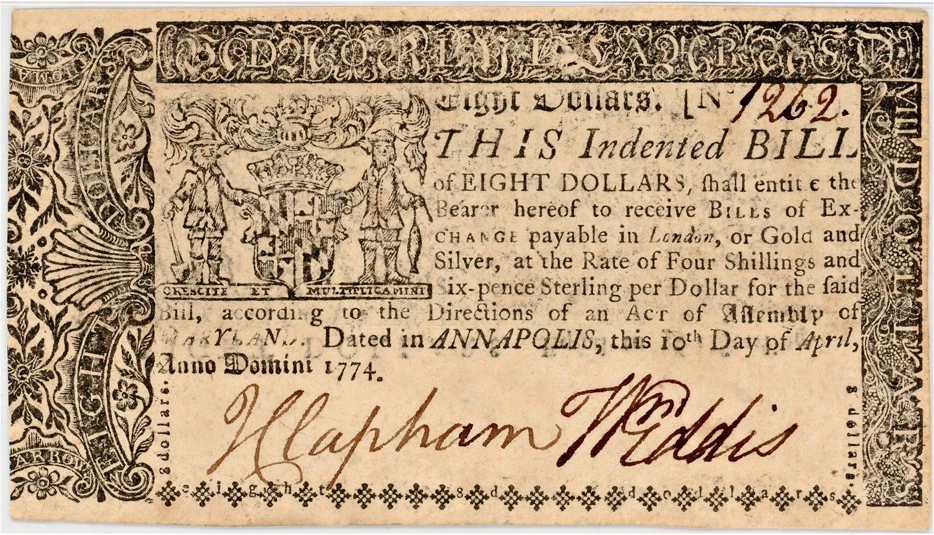 Eight Dollars. [No 1262.
THIS Indented BILL
of EIGHT DOLLARS, ſhall entitle the
Bearer hereof to receive BILLS of Ex-
CHANGE payable in London, or Gold and
Silver, at the Rate of Four Shillings and
Six-pence Sterling per Dollar for the ſaid
Bill, according to the Directions of an Act of Aſſembly of
MARYLAND. Dated in ANNAPOLIS, this 10th Day of April,
Anno Domini 1774.
CRESCITE ET MULTIPLICAMINI
JClapham Wm Eddis
8 dollars.
8 dollars.
eight 8d dollars
EIGHT DOLLER
VIII DOLLARS